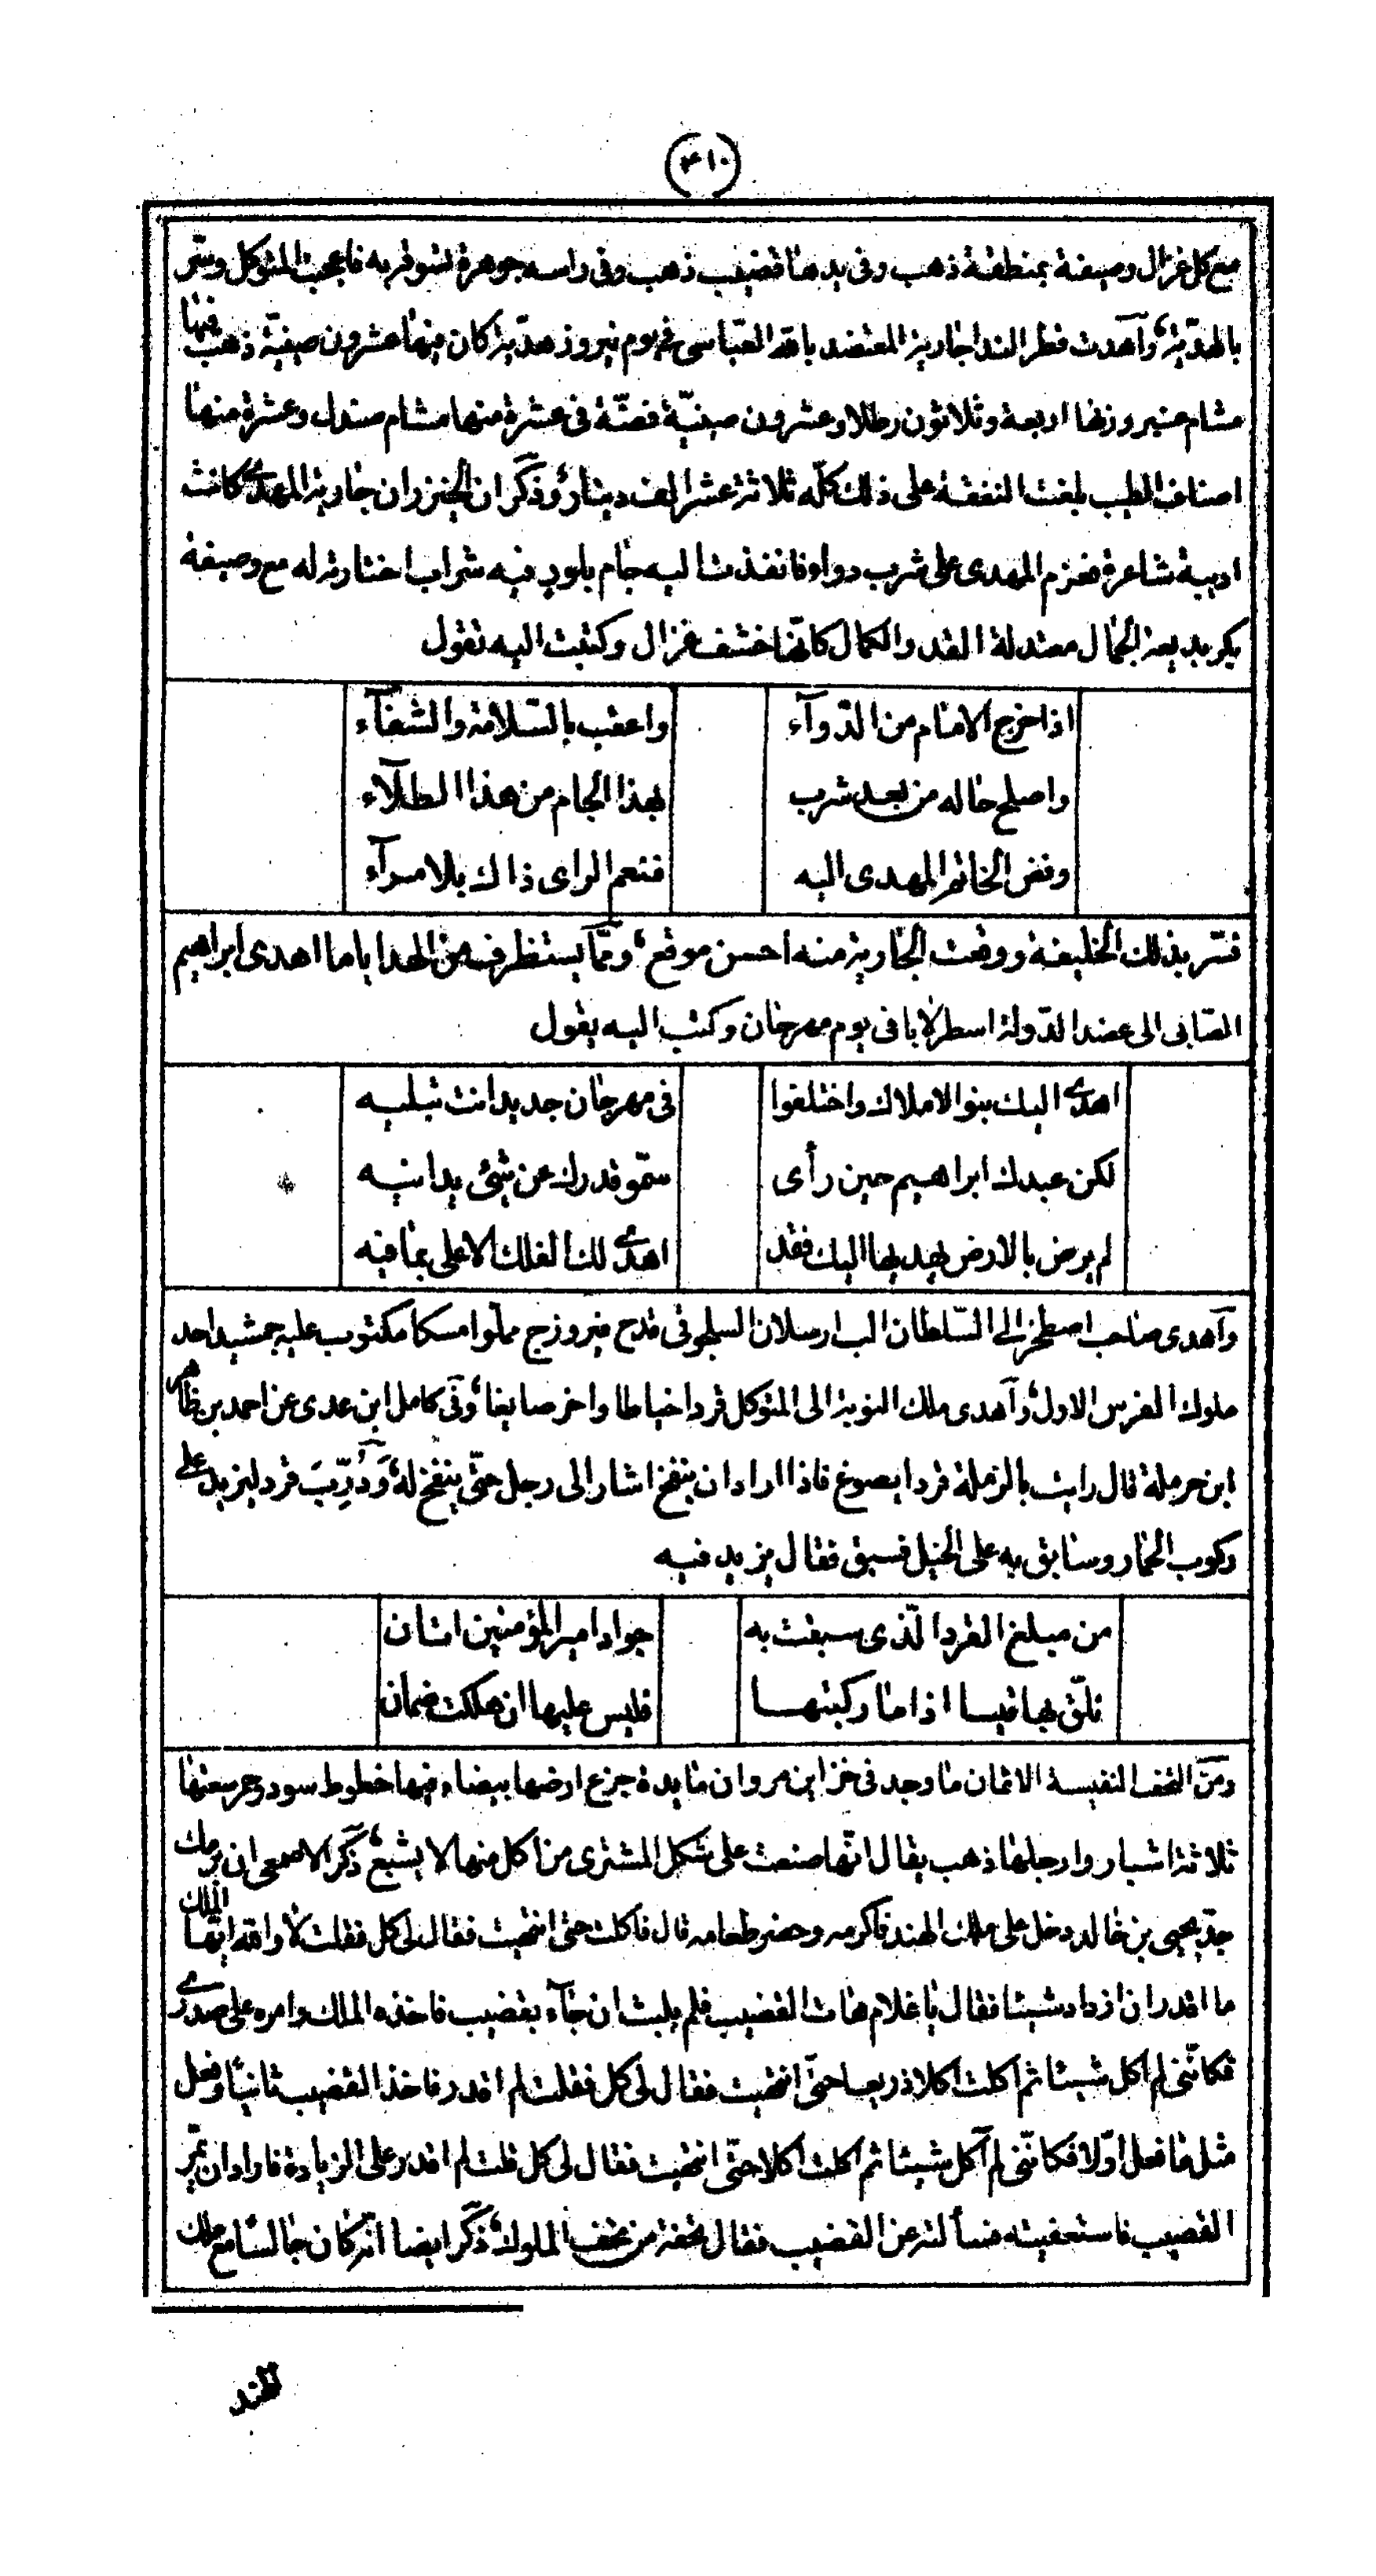 (٣١٠)
مع كل غزال وصيفة بمنطقة ذهب وفى يدها قضيب ذهب وفى راسه جوهرة فاعجب المتوكل وسّر
بالهديّة وآهدت قطر الندا جارية المعتضد بالله العبّاسى فى يوم نيروز هديّة كان فيها عشرون صينيّة ذهب فيها
مشام عنبر وزنها اربعة وثلاثون رطلا وعشرون صينيّة فضّة فى عشرة منها مشام صندل وعشرة منها
اصناف الطيب بلغت النفقة على ذلك كلّه ثلاثة عشر الف دينار وذكر ان الخيزران جارية المهدى كانت
اديبة شاعرة فعزم المهدى على شرب دواء فانفذت اليه جام بلور فيه شراب اختارته له مع وصيفة
بكر بديعة الجمال معتدلة القد والكمال كانّها خشف غزال وكتبت اليه تقول
اذا خرج الامام من الدّوآء واعقب بالسّلامة والشفآء
واصلح حاله من بعد شرب بهذا الجام من هذا الطلآء
وفض الخاتم المهدى اليه فنعم الراى ذاك بلا مرآء
فسّر بذلك الخليفة ووقعت الجارية منه احسن موقع وممّا يستظرف من الهدايا ما اهدى ابراهيم
الصّابى الى عضد الدّولة اسطرلابا فى يوم مهرجان وكتب اليه يقول
اهدى اليك بنو الاملاك واختلفوا فى مهرجان جديد انت تبليه
لكن عبدك ابراهيم حين رأى سمّو قدرك عن شئ يدانيه
لم يرض بالارض يهديها اليك فقد اهدى لك الفلك الاعلى بما فيه
وآهدى صاحب اصطخر الى السّلطان الب ارسلان السلجوقى قدح فيروزج مملّوا مسكا مكتوب عليه جمشيد احد
ملوك الفرس الاول وآهدى ملك النوبة الى المتوكل قردا خياطا واخر صايغا وفى كامل ابن عدى عن احمد بن طاهر
ابن حرملة قال رايت بالرّملة قردا يصوغ فاذا اراد ان ينفخ اشار الى رجل حتّى ينفخ له وَدُرِّبَ قرد ليزيد على
ركوب الحمار وسابق به على الخيل فسبق فقال يزيد فيه
من مبلغ القرد الّذى سبقت به جواد امير المؤمنين اتان
تعلّق بها قيسا اذا ما ركبتها فليس عليها ان هلكت ضمان
ومن التحف النفيسة الاثمان ما وجد فى خزاين مروان مايدة جزع ارضها بيضاء فيها خطوط سود وحمر سعتها
ثلاثة اشبار وارجلها ذهب يقال انّها صنعت على شكل المشترى من اكل منها لا يشبع ذكر الاصمعى ان برمك
جدّ يحيى بن خالد دخل على ملك الهند فاكرمه وحضر طعامه قال فاكلت حتى انتهيت فقال لى كل فقلت لا والله ايّها الملك
ما اقدر ان ازداد شيئا فقال يا غلام هات القضيب فلم يلبث ان جآء بقضيب فاخذه الملك وامره على صدرى
فكانّنى لم اكل شيئا ثم اكلت اكلا ذريعا حتّى انتهيت فقال لى كل فقلت لم اقدر فاخذ القضيب ثانيا وفعل
مثل ما فعل اوّلا فكانّنى لم آكل شيئا ثم اكلت اكلا حتّى انتهيت فقال لى كل قلت لم اقدر على الزيادة فاراد ان يمّر
القضيب فاستعفيته فسألته عن القضيب فقال تحفة من تحف الملوك ذكر ايضا انّه كان جالسا مع ملك
الهند